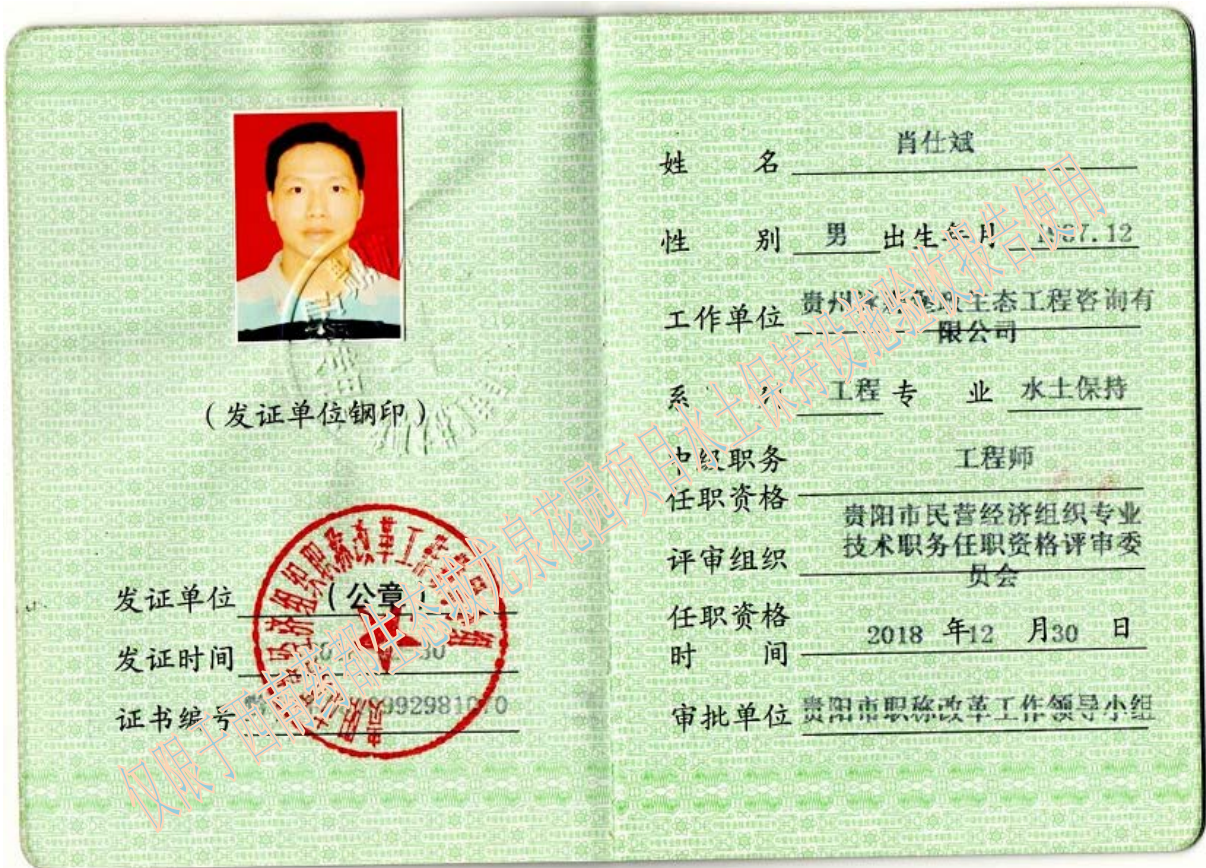 （发证单位钢印）
发证单位 （公章）
发证时间
证书编号
姓 名 肖仕斌
性 别 男 出生年月
工作单位 贵州
生态工程咨询有
限公司
系 列 工程 专 业 水土保持
中级职务
任职资格 工程师
评审组织 贵阳市民营经济组织专业
技术职务任职资格评审委
员会
任职资格
时 间 2018 年12 月30 日
审批单位 贵阳市职称改革工作领导小组
仅限于西南药都生态城龙泉花园项目水土保持设施验收报告使用